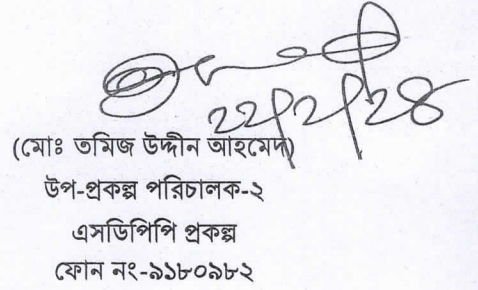 ২২/২/২৪
(মোঃ তমিজ উদ্দীন আহমেদ)
উপ-প্রকল্প পরিচালক-২
এসডিপিপি প্রকল্প
ফোন নং-৯১৮০৯৮২